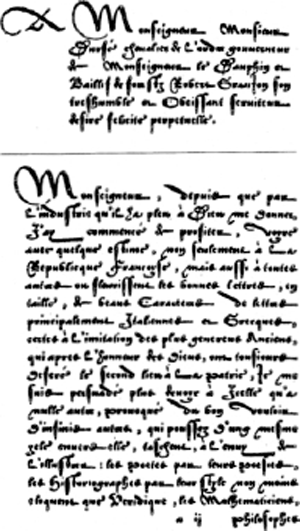 A Monseigneur Monsieur
Durfé chevalier de l'ordre gouverneur
de Monseigneur le Dauphin et
Baillif de forestz Robert Granjon son
treshumble et Obeissant serviteur
desire felicité perpetuelle.
Monseigneur, depuis que par
l'industrie qu'il ha pleu à Dieu me donner,
J'ay commencé de profiter, voyre
avec quelque estime, non seulement à la
Republicque Françoyse, mais aussi à toutes
autres ou florissent les bonnes lettres, en
taille, de beaus Caracteres de lettres
principalement Italiennes et Grecques,
certes à l'imitation des plus genereus Anciens,
qui apres l'honneur des Dieus, ont tousiours
deferé le second lieu à la patrie, Je me
suis persuadé plus devoir à Icelle qu'à
nulle autre, provoqué du bon vouloir
d'infinis autres, qui poussez d'ung mesme
zele envers elle, taschent, à l'envy de
l'illustrer: les poetes par leurs poesies,
les Historiographes par leur style non moins
eloquent que Veridique, les Mathematiciens,
a ij philosophes